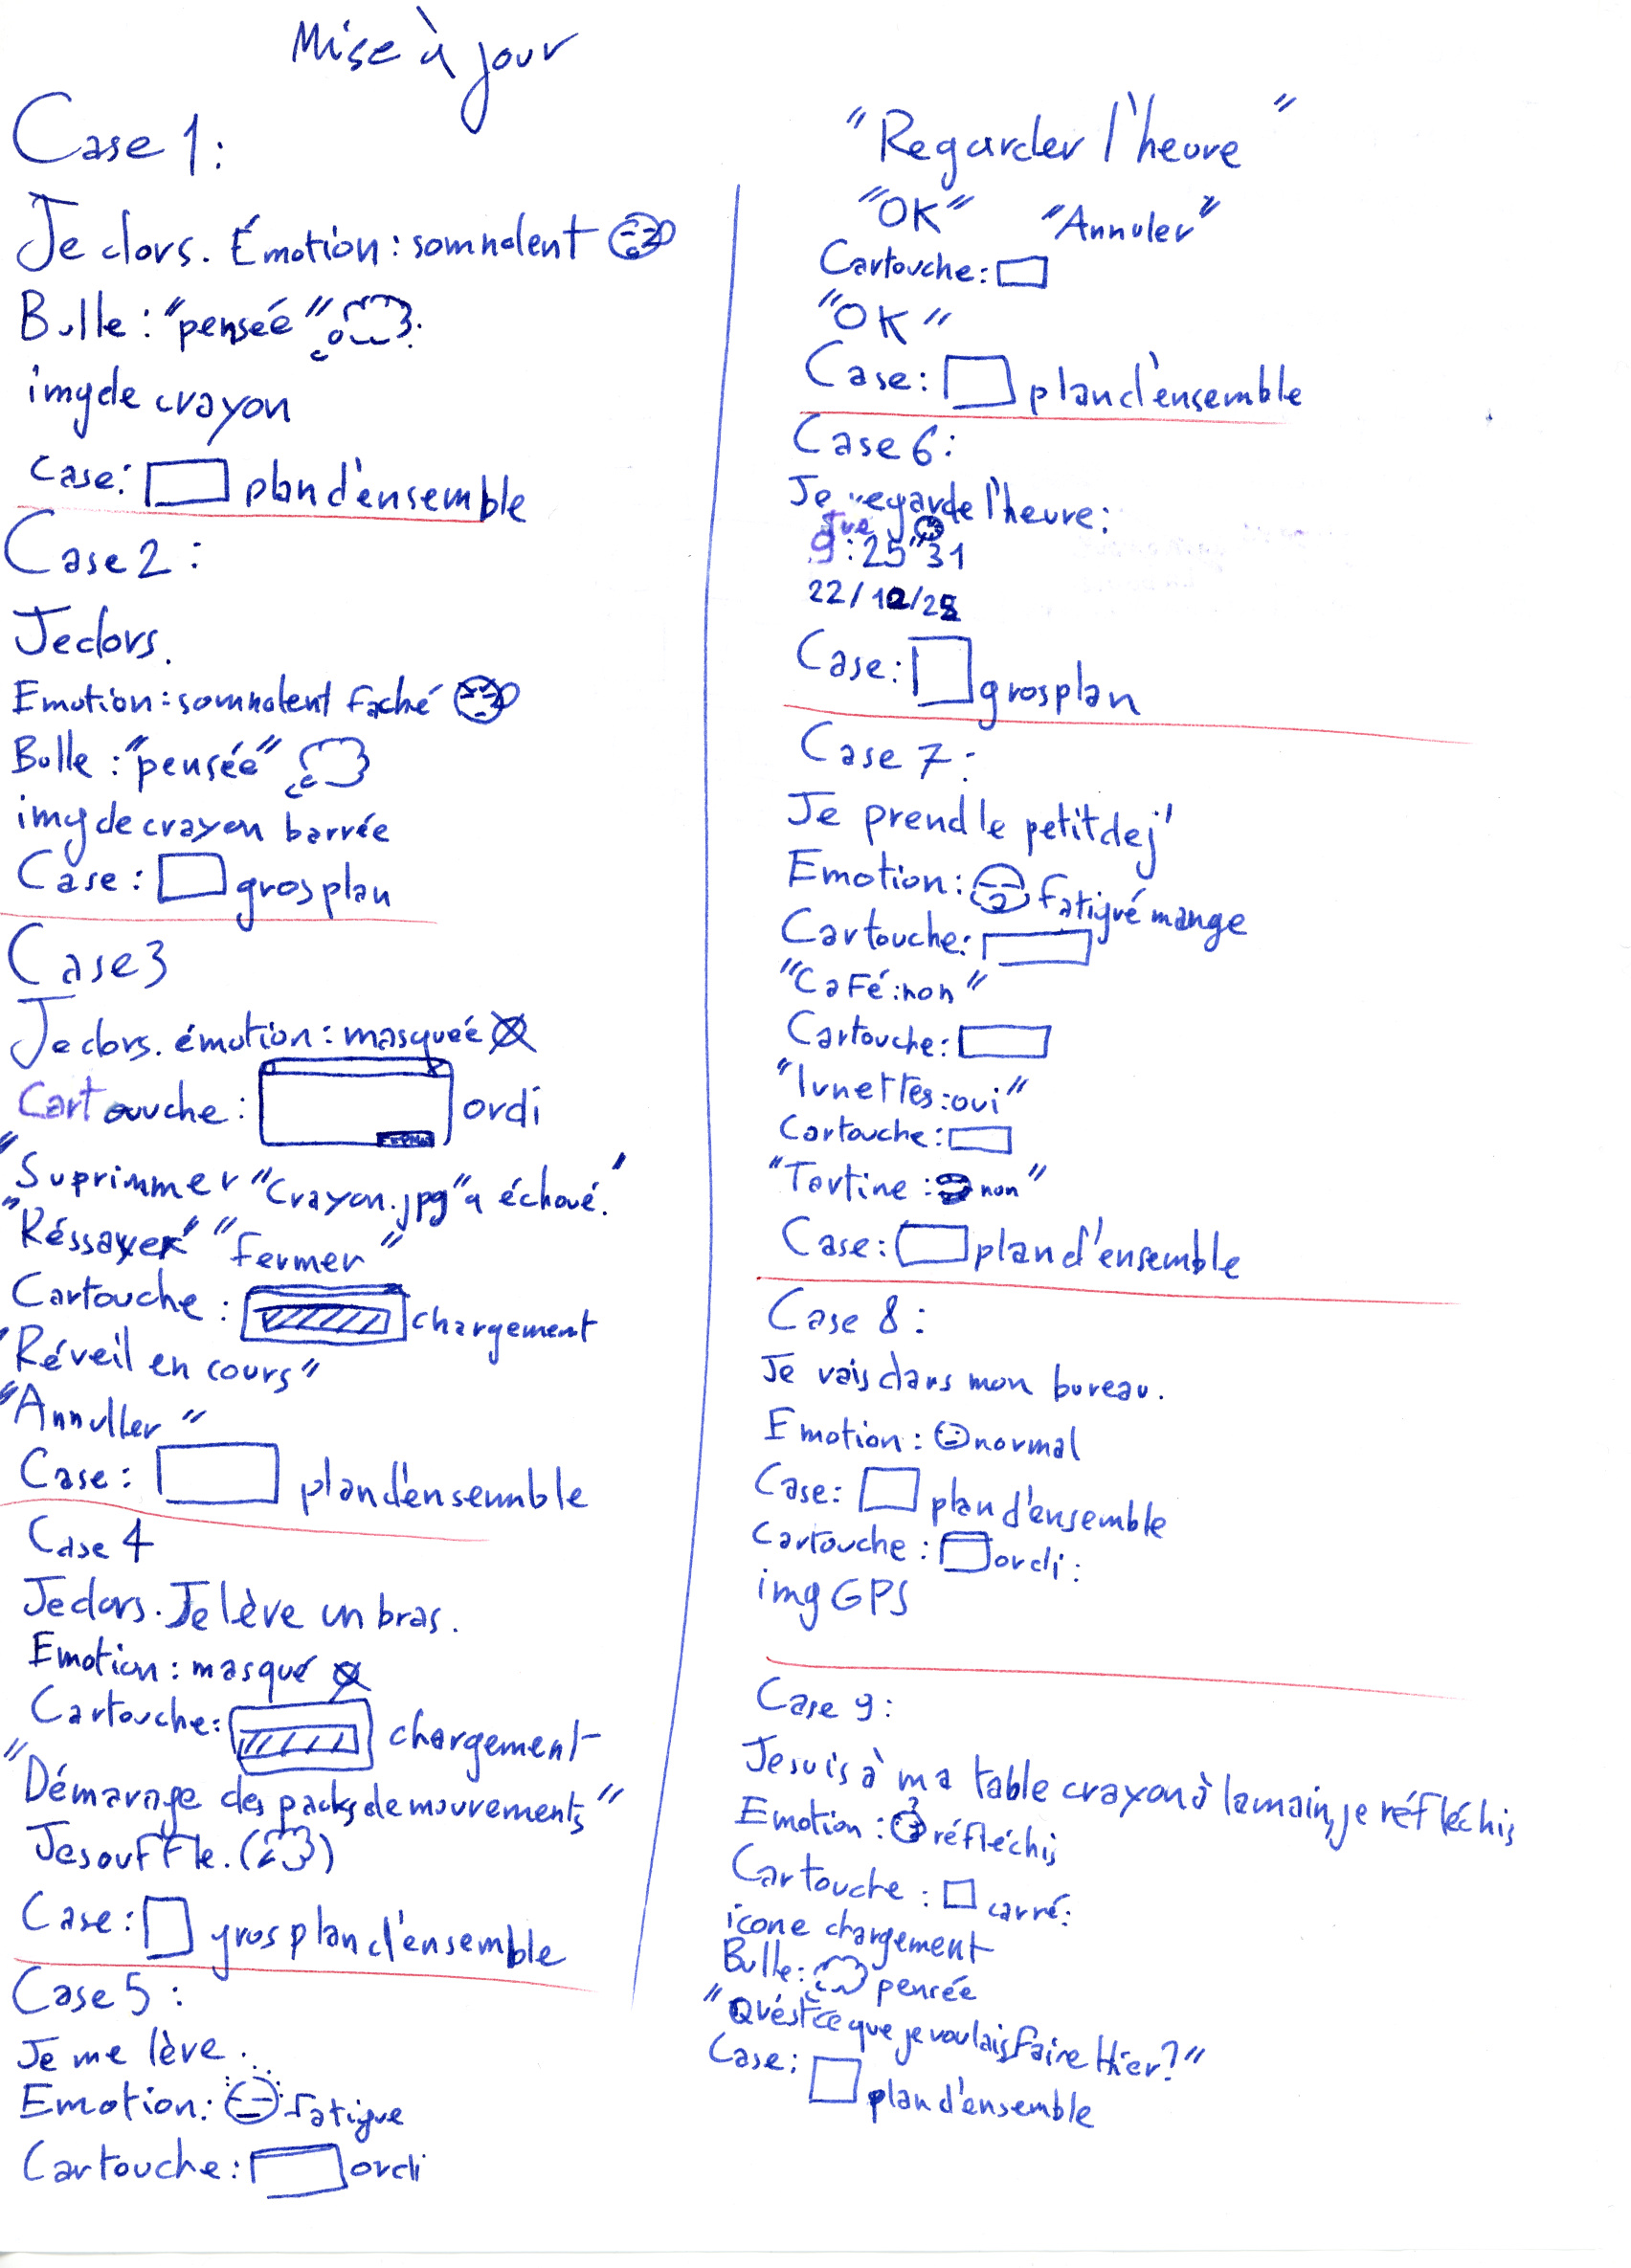 Mise à jour
Case 1:
Je dors. Émotion : somnolent
Bulle : "pensée"
img de crayon
case: plan d'ensemble
Case 2 :
Je dors.
Emotion : somnolent faché
Bulle : "pensée"
img de crayon barrée
Case : gros plan
Case 3
Je dors. émotion : masqueé
Cartouche : ordi
"Suprimmer "Crayon.jpg" a échoué."
"Réssayer" "Fermer"
Cartouche : chargement
"Réveil en cours"
"Annuller"
Case : plan d'ensemble
Case 4
Je dors. Je lève un bras.
Emotion : masqué
Cartouche: chargement
"Démarage des packs de mouvements"
Je souffle. ( )
Case : gros plan d'ensemble
Case 5 :
Je me lève.
Emotion: fatigue
Cartouche : ordi
"Regarder l'heure"
"OK" "Annuler"
Cartouche :
"OK"
Case : plan d'ensemble
Case 6 :
Je regarde l'heure :
9:25"31
22/12/25
Case : gros plan
Case 7 :
Je prend le petit dej'
Emotion : fatigué mange
Cartouche :
"Café : non"
Cartouche :
"lunettes : oui"
Cartouche :
"Tartine : non"
Case : plan d'ensemble
Case 8 :
Je vais dans mon bureau.
Emotion : normal
Case : plan d'ensemble
Cartouche : ordi :
img GPS
Case 9 :
Je suis à ma table crayon à la main, je réfléchis
Emotion : réfléchis
Cartouche : carré :
icone chargement
Bulle : pensée
"Qu'est ce que je voulais faire Hier ?"
Case : plan d'ensemble